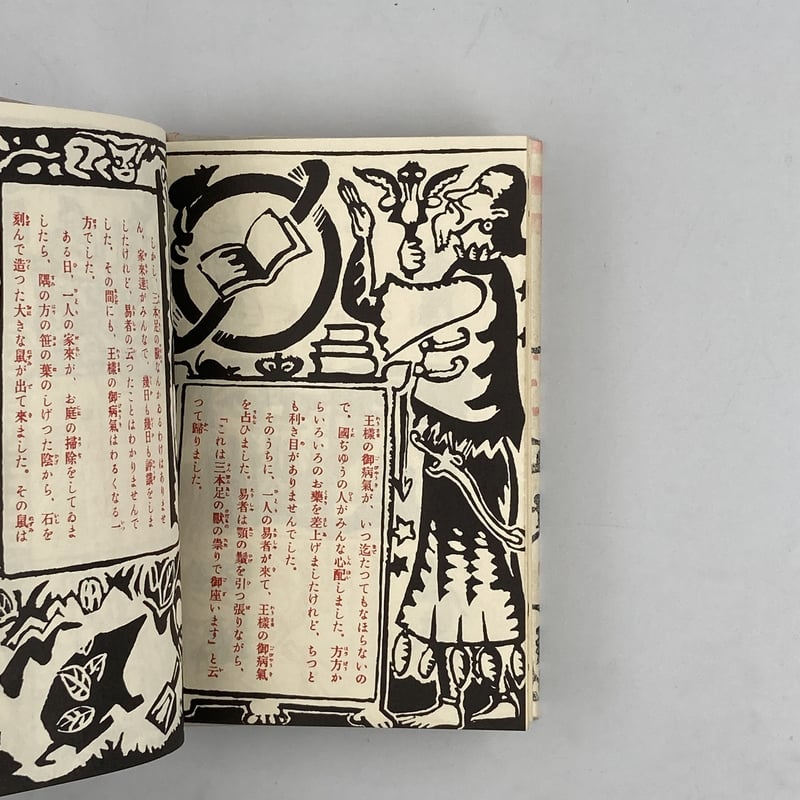 王樣の御病氣が、いつ迄たつてもなほらないの
で、國ぢゆうの人がみんな心配しました。方方か
らいろいろのお藥を差上げましたけれど、ちつと
も利き目がありませんでした。
そのうちに、一人の易者が來て、王樣の御病氣
を占ひました。易者は顎の鬚を引つ張りながら、
「これは三本足の獸の祟りで御座います」と云
つて歸りました。
しかし、三本足の獸なんかゐるわけはありませ
ん。家來達がみんなで、幾日も幾日も評議をしま
したけれど、易者の云つたことはわかりませんで
した。その間にも、王樣の御病氣はわるくなる一
方でした。
ある日、一人の家來が、お庭の掃除をしてゐま
したら、隅の方の笹の葉のしげつた陰から、石を
刻んで造つた大きな鼠が出て來ました。その鼠は